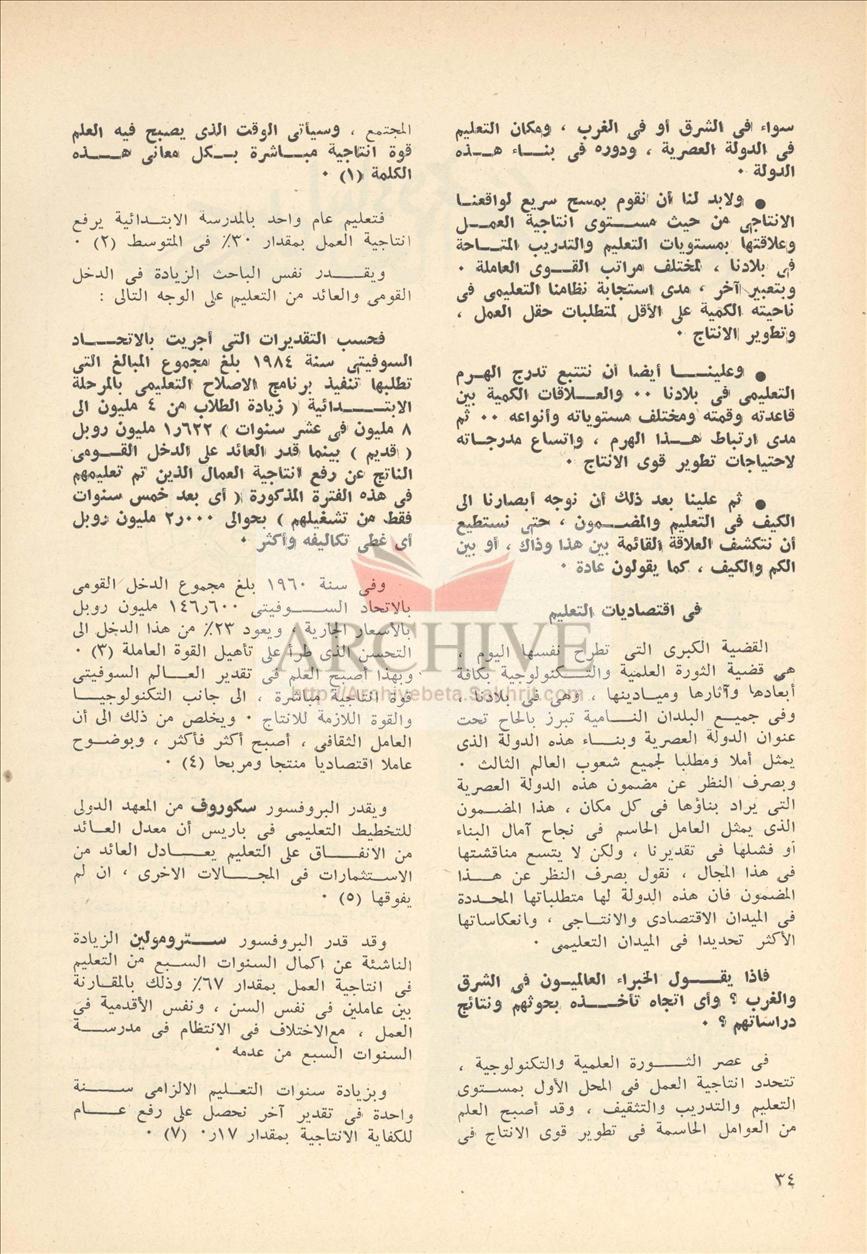 سواء فى الشرق أو فى الغرب ، ومكان التعليم
فى الدولة العصرية ، ودوره فى بناء هذه
الدولة ٠
● ولابد لنا أن نقوم بمسح سريع لواقعنا
الانتاجى من حيث مستوى انتاجية العمل
وعلاقتها بمستويات التعليم والتدريب المتاحة
فى بلادنا ، لمختلف مراتب القوى العاملة ٠
وبتعبير آخر ، مدى استجابة نظامنا التعليمى فى
ناحيته الكمية على الأقل لمتطلبات حقل العمل ،
وتطوير الانتاج ٠
● وعلينا أيضا أن نتتبع تدرج الهرم
التعليمى فى بلادنا ٠٠ والعلاقات الكمية بين
قاعدته وقمته ومختلف مستوياته وأنواعه ٠٠ ثم
مدى ارتباط هذا الهرم ، واتساع مدرجاته
لاحتياجات تطوير قوى الانتاج ٠
● ثم علينا بعد ذلك أن نوجه أبصارنا الى
الكيف فى التعليم والمضمون ، حتى نستطيع
أن نتكشف العلاقة القائمة بين هذا وذاك ، أو بين
الكم والكيف ، كما يقولون عادة ٠
فى اقتصاديات التعليم
القضية الكبرى التى تطرح نفسها اليوم ،
هى قضية الثورة العلمية والتكنولوجية بكافة
أبعادها وآثارها وميادينها ، وهى فى بلادنا ،
وفى جميع البلدان النامية تبرز بالحاح تحت
عنوان الدولة العصرية وبناء هذه الدولة الذى
يمثل أملا ومطلبا لجميع شعوب العالم الثالث ٠
وبصرف النظر عن مضمون هذه الدولة العصرية
التى يراد بناؤها فى كل مكان ، هذا المضمون
الذى يمثل العامل الحاسم فى نجاح آمال البناء
أو فشلها فى تقديرنا ، ولكن لا يتسع مناقشتها
فى هذا المجال ، نقول بصرف النظر عن هذا
المضمون فان هذه الدولة لها متطلباتها المحددة
فى الميدان الاقتصادى والانتاجى ، وانعكاساتها
الأكثر تحديدا فى الميدان التعليمى ٠
فاذا يقول الخبراء العالميون فى الشرق
والغرب ؟ وأى اتجاه تأخذه بحوثهم ونتائج
دراساتهم ؟ ٠
فى عصر الثورة العلمية والتكنولوجية ،
تتحدد انتاجية العمل فى المحل الأول بمستوى
التعليم والتدريب والتثقيف ، وقد أصبح العلم
من العوامل الحاسمة فى تطوير قوى الانتاج فى
المجتمع ، وسيأتى الوقت الذى يصبح فيه العلم
قوة انتاجية مباشرة بكل معانى هذه
الكلمة (١) ٠
فتعليم عام واحد بالمدرسة الابتدائية يرفع
انتاجية العمل بمقدار ٣٠٪ فى المتوسط (٢) ٠
ويقدر نفس الباحث الزيادة فى الدخل
القومى والعائد من التعليم على الوجه التالى :
فحسب التقديرات التى أجريت بالاتحاد
السوفيتى سنة ١٩٨٤ بلغ مجموع المبالغ التى
تطلبها تنفيذ برنامج الاصلاح التعليمى بالمرحلة
الابتدائية ( زيادة الطلاب من ٤ مليون الى
٨ مليون فى عشر سنوات ) ٦٢٢ر١ مليون روبل
( قديم ) بينما قدر العائد على الدخل القومى
الناتج عن رفع انتاجية العمال الذين تم تعليمهم
فى هذه الفترة المذكورة ( أى بعد خمس سنوات
فقط من تشغيلهم ) بحوالى ٠٠٠ر٢ مليون روبل
أى غطى تكاليفه وأكثر ٠
وفى سنة ١٩٦٠ بلغ مجموع الدخل القومى
بالاتحاد السوفيتى ٦٠٠ر١٤٦ مليون روبل
بالأسعار الجارية ، ويعود ٢٣٪ من هذا الدخل الى
التحسن الذى طرأ على تأهيل القوة العاملة (٣) ٠
وبهذا أصبح العلم فى تقدير العالم السوفيتى
قوة انتاجية مباشرة ، الى جانب التكنولوجيا
والقوة اللازمة للانتاج ٠ ويخلص من ذلك الى أن
العامل الثقافى ، أصبح أكثر فأكثر ، وبوضوح
عاملا اقتصاديا منتجا ومربحا (٤) ٠
ويقدر البروفسور سكوروف من المعهد الدولى
للتخطيط التعليمى فى باريس أن معدل العائد
من الانفاق على التعليم يعادل العائد من
الاستثمارات فى المجالات الاخرى ، ان لم
يفوقها (٥) ٠
وقد قدر البروفسور سترومولين الزيادة
الناشئة عن اكمال السنوات السبع من التعليم
فى انتاجية العمل بمقدار ٦٧٪ وذلك بالمقارنة
بين عاملين فى نفس السن ، ونفس الأقدمية فى
العمل ، مع الاختلاف فى الانتظام فى مدرسة
السنوات السبع من عدمه ٠
وبزيادة سنوات التعليم الالزامى سنة
واحدة فى تقدير آخر نحصل على رفع عام
للكفاية الانتاجية بمقدار ١٧ر٠ (٧) ٠
٣٤
ARCHIVE
http://Archivebeta.Sakhrit.com